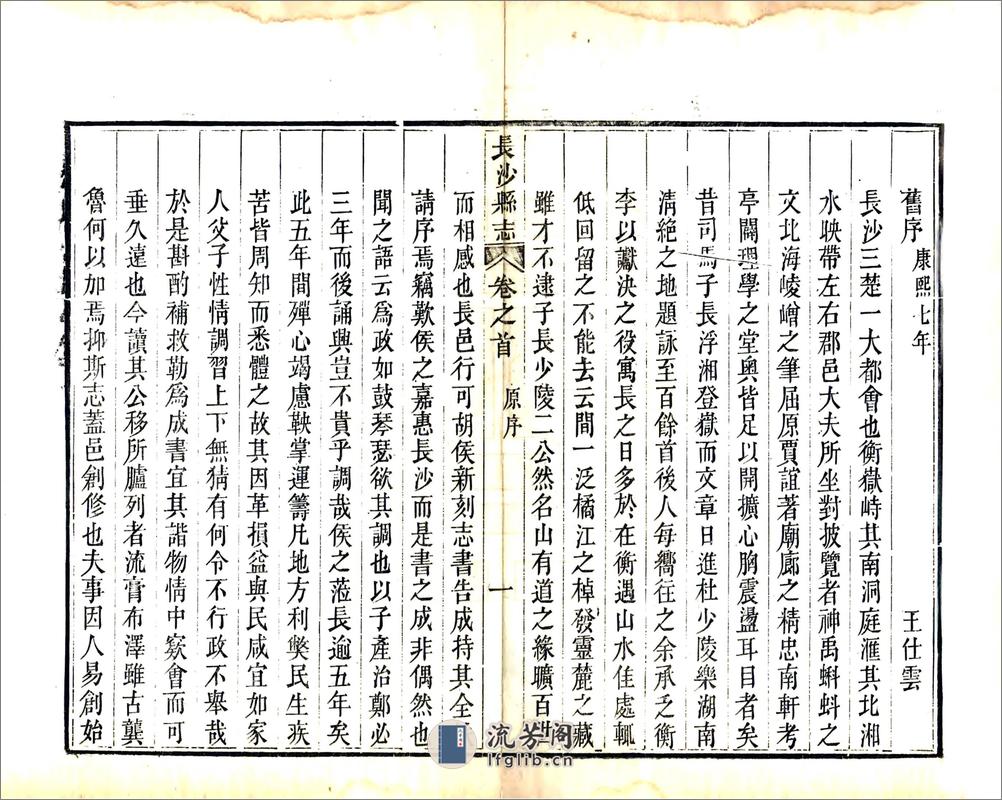 舊序 康熙七年 王仕雲
長沙三楚一大都會也衡嶽峙其南洞庭滙其北湘
水映帶左右郡邑大夫所坐對披覽者神禹蝌蚪之
文北海崚嶒之筆屈原賈誼著廟廊之精忠南軒考
亭闢理學之堂奧皆足以開擴心胸震盪耳目者矣
昔司馬子長浮湘登嶽而文章日進杜少陵樂湖南
清絶之地題詠至百餘首後人每嚮往之余承乏衡
李以讞決之役寓長之日多於在衡遇山水佳處輒
低回留之不能去云間一泛橘江之棹發靈麓之藏
雖才不逮子長少陵二公然名山有道之緣曠百世
長沙縣志 卷之首 原序 一
而相感也長邑行可胡侯新刻志書告成持其全
請序焉竊歎侯之嘉惠長沙而是書之成非偶然也
聞之語云爲政如鼓琴瑟欲其調也以子產治鄭必
三年而後誦興豈不貴乎調哉侯之蒞長逾五年矣
此五年間殫心竭慮鞅掌運籌凡地方利獘民生疾
苦皆周知而悉體之故其因革損益與民咸宜如家
人父子性情調習上下無猜有何令不行政不舉哉
於是斟酌補救勒爲成書宜其諧物情中窽會而可
垂久遠也今讀其公移所臚列者流膏布澤雖古龔
魯何以加焉抑斯志蓋邑創修也夫事因人易創始
流芳阁
lfglib.cn